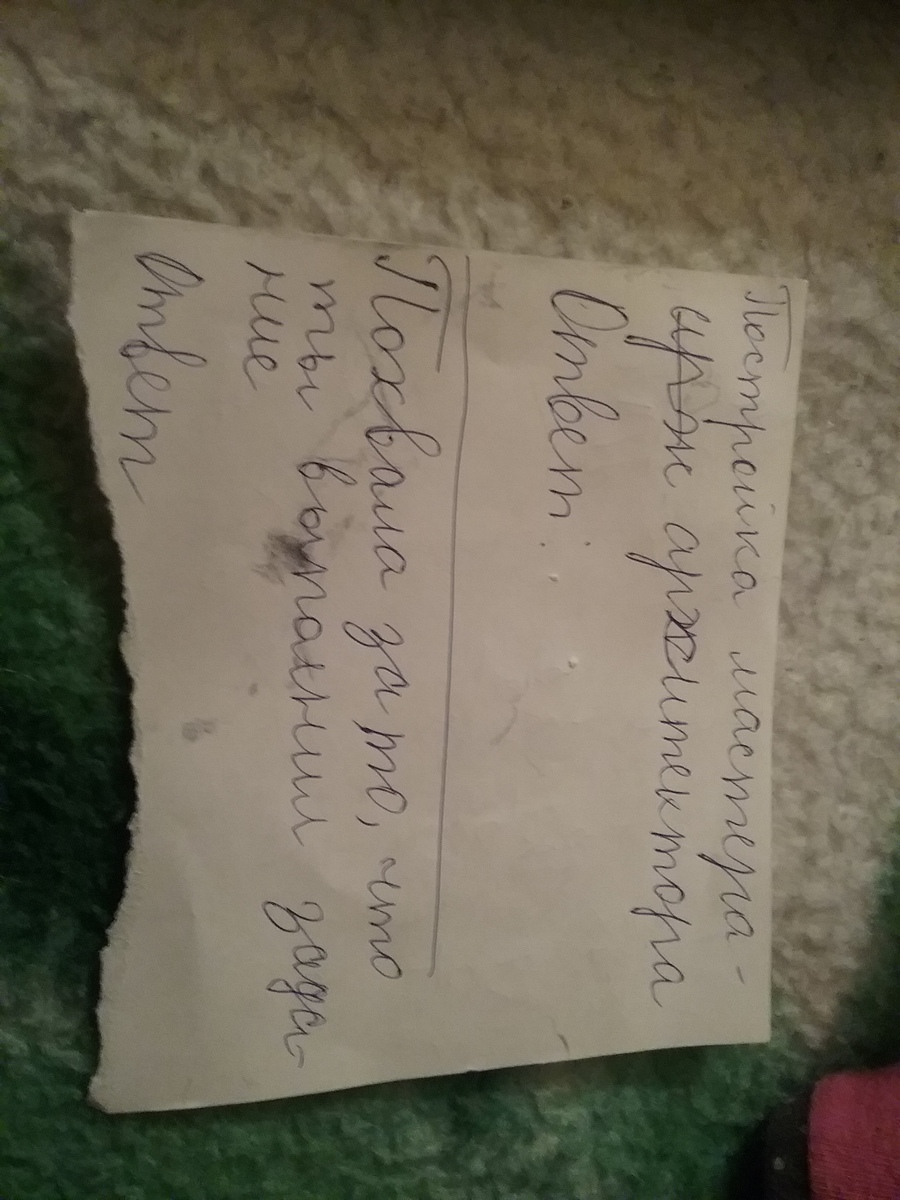 Постройка мастера -
архитектора
Ответ:
Похвала за то, что
ты выполнил зада-
ние
Ответ